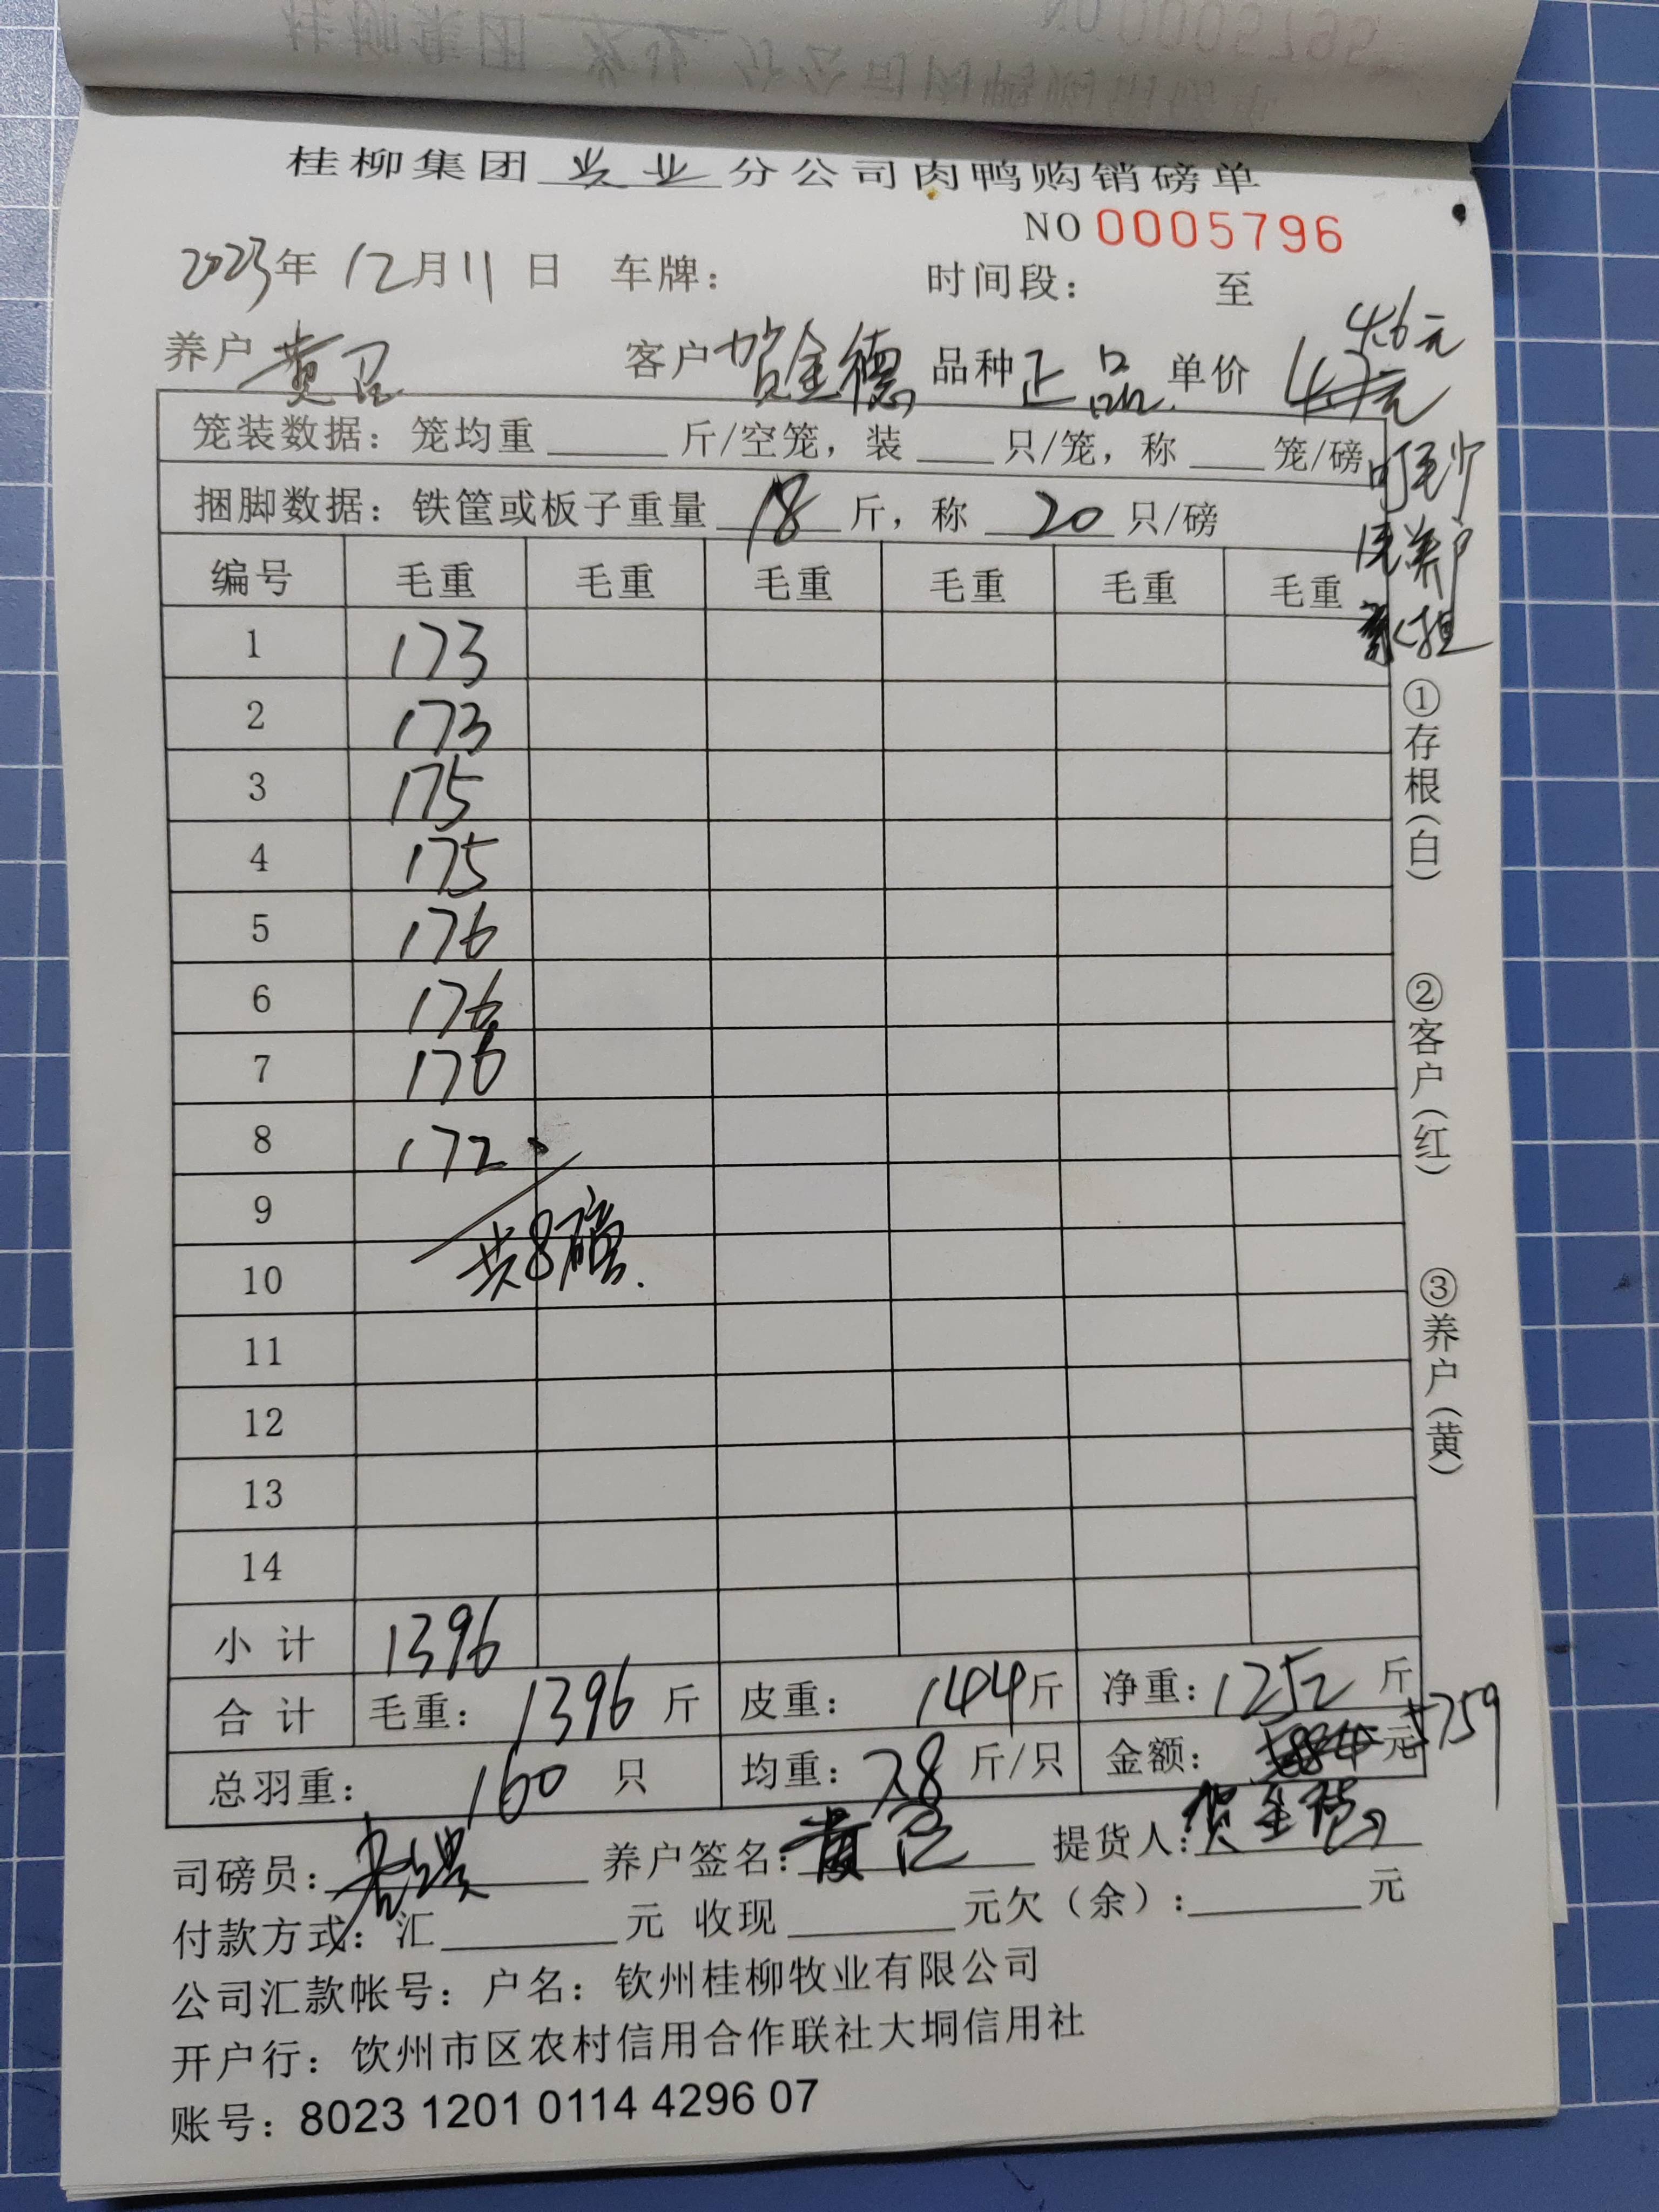 桂柳集团 兴业 分公司肉鸭购销磅单
NO 0005796
2023年 12月11日 车牌： 时间段： 至
4.6元
养户 黄 客户 贺金德 品种 正品 单价 4.7元
笼装数据：笼均重 斤/空笼，装 只/笼，称 笼/磅
捆脚数据：铁筐或板子重量 18 斤，称 20 只/磅
养户
承担
编号 毛重 毛重 毛重 毛重 毛重 毛重
1 173
2 173
3 175
4 175
5 176
6 176
7 176
8 172
9
10 共8磅.
11
12
13
14
小计 1396
合计 毛重：1396 斤 皮重：144斤 净重：1252 斤
总羽重：160 只 均重：7.8 斤/只 金额： 元 5759
司磅员： 养户签名：黄 提货人：贺金德
付款方式：汇 元 收现 元欠（余）： 元
公司汇款帐号：户名：钦州桂柳牧业有限公司
开户行：钦州市区农村信用合作联社大垌信用社
账号：8023 1201 0114 4296 07
①存根（白）
②客户（红）
③养户（黄）